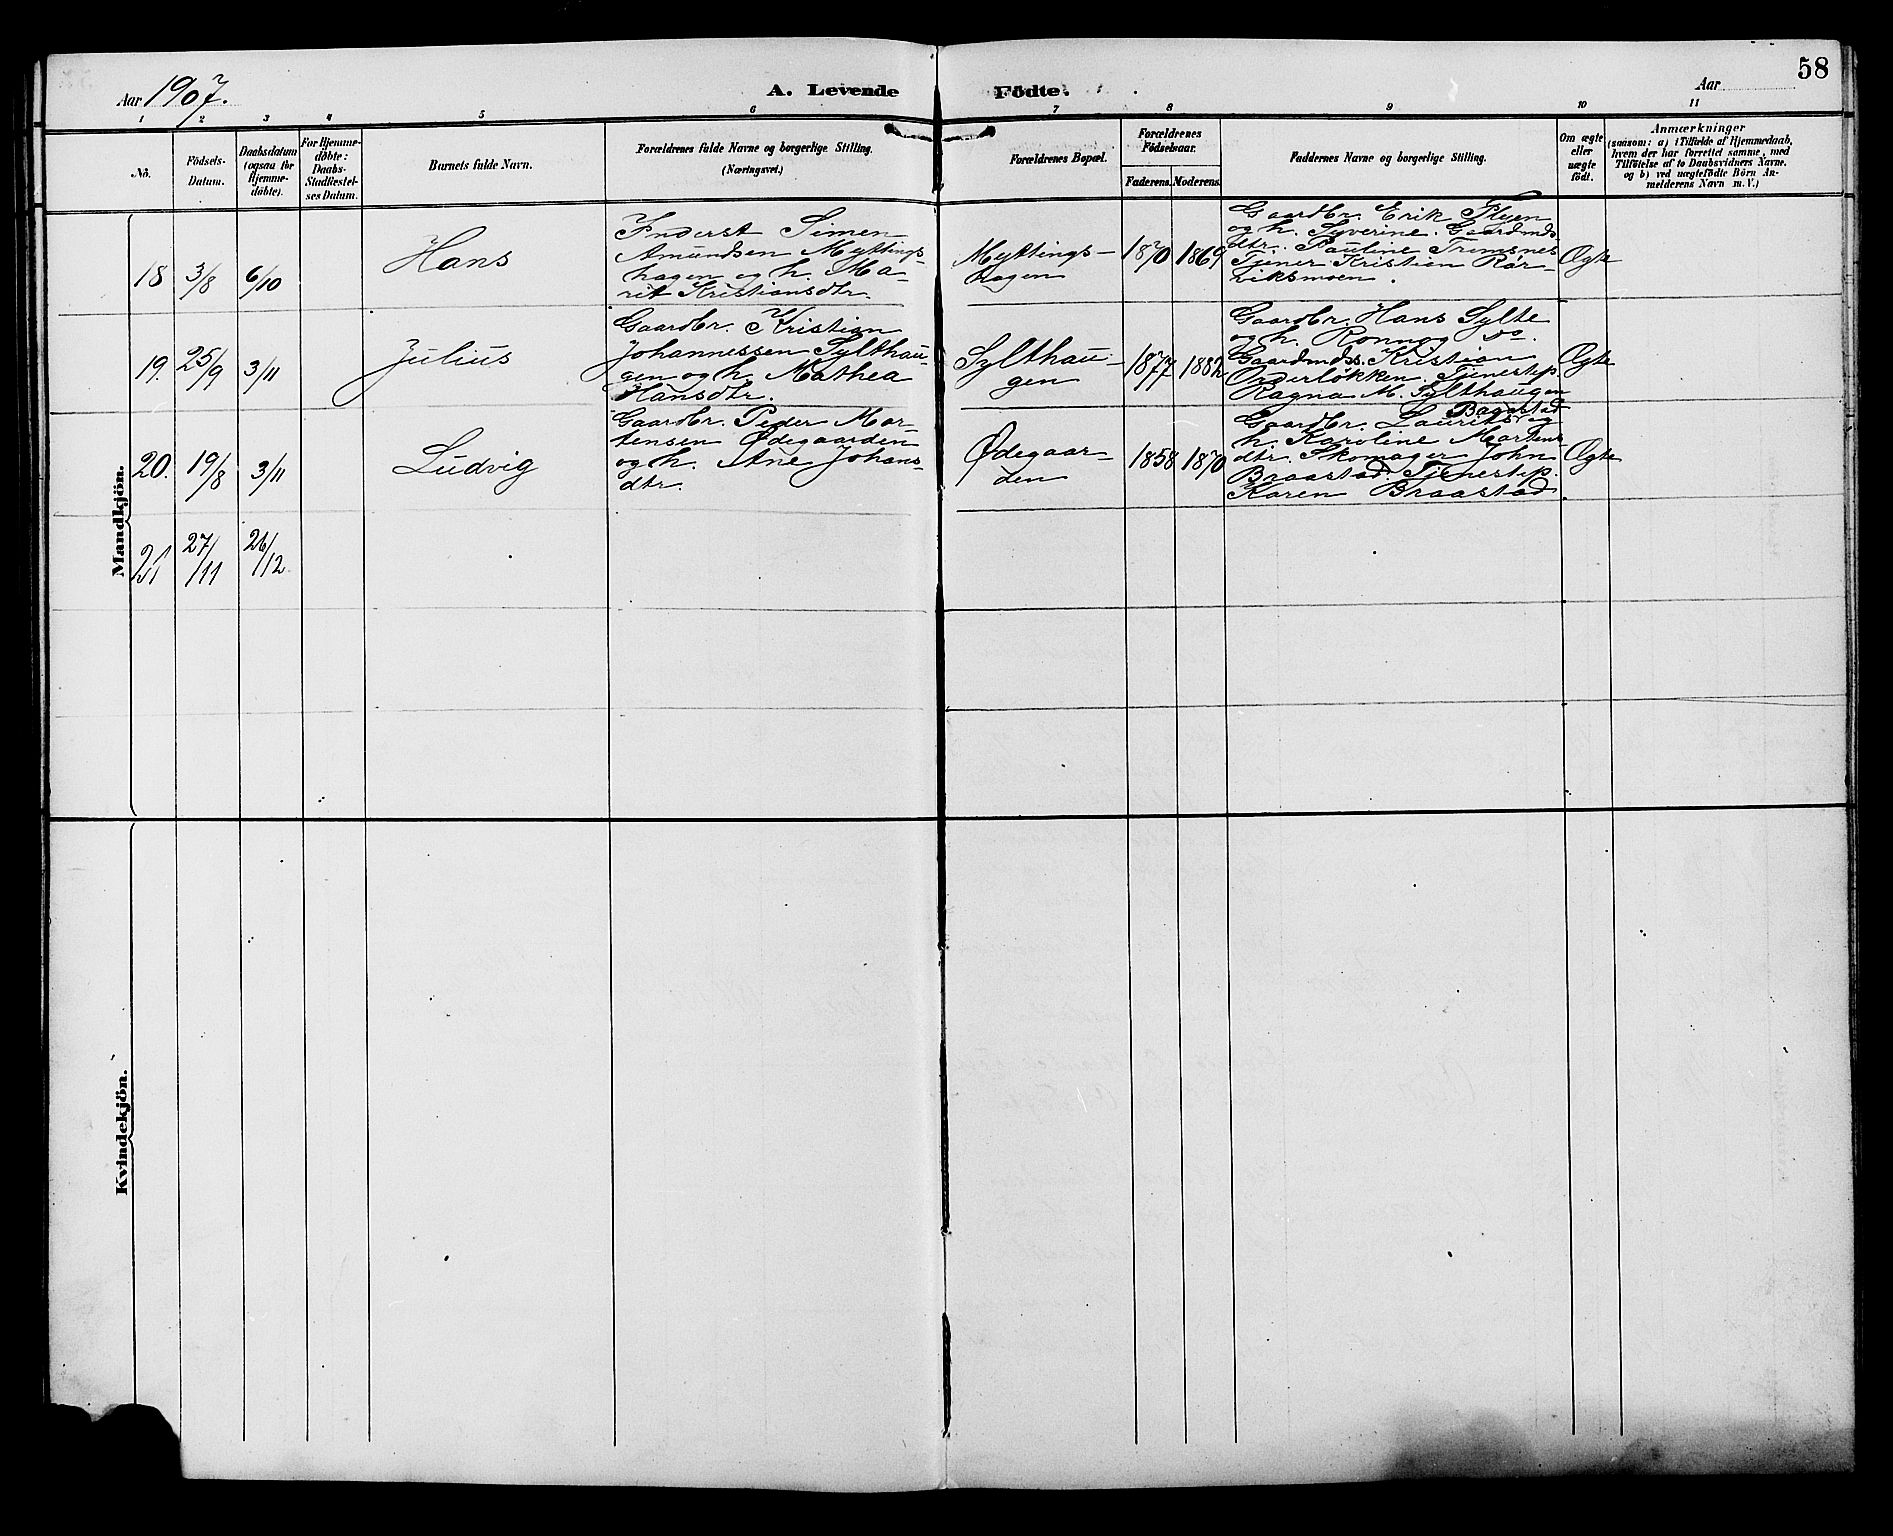 58
Aar 1907.
A. Levende Födte.
Aar
1 2 3 4 5 6 7 8 9 10 11
Nö.
Födsels-
Datum.
Daabsdatum
(ogsaa for
Hjemme-
döbte).
For Hjemme-
döbte:
Daabs-
Stadfæstel-
ses Datum.
Barnets fulde Navn.
Forældrenes fulde Navne og borgerlige Stilling.
(Næringsvei.)
Forældrenes Bopæl.
Forældrenes
Födselsaar.
Faderens. Moderens.
Faddernes Navne og borgerlige Stilling.
Om ægte
eller
uægte
födt.
Anmærkninger
(saasom: a) i Tilfælde af Hjemmedaab,
hvem der har forrettet samme, med
Tilföielse af to Daabsvidners Navne.
og b) ved uægtefödte Börn An-
melderens Navn m. V.)
Mandkjön.
18 3/8 6/10
Hans
Inderst Simen
Amundsen Myttings-
hagen og h. Ma-
rit Kristiansdtr.
Myttings-
hagen
1870 1869
Gaardbr. Erik Flyen
og h. Syverine. Gaardmds
dtr. Pauline Tromsnes
Tjener Kristian Rør-
viksmoen.
Ægte
19. 25/9 3/11
Julius
Gaardbr. Kristian
Johannessen Sylthau-
gen og h. Mathea
Hansdtr.
Sylthau-
gen
1877 1882
Gaardbr. Hans Sylte
og h. Rønnog
Gaardmds. Kristian
Onderløkken. Tjenestep.
Ragna M. Sylthaugen
Ægte
20. 19/8 3/11
Ludvig
Gaardbr. Peder Mor-
tensen Ødegaarden
og h. Ane Johans-
dtr.
Ødegaar-
den
1858 1870
Gaardbr. Laurits Bagstad og
h. Karoline Mortens-
dtr. Skomager John
Braastad. Tjenestep.
Karen Braastad
Ægte
21 27/11 26/12
Kvindekjön.